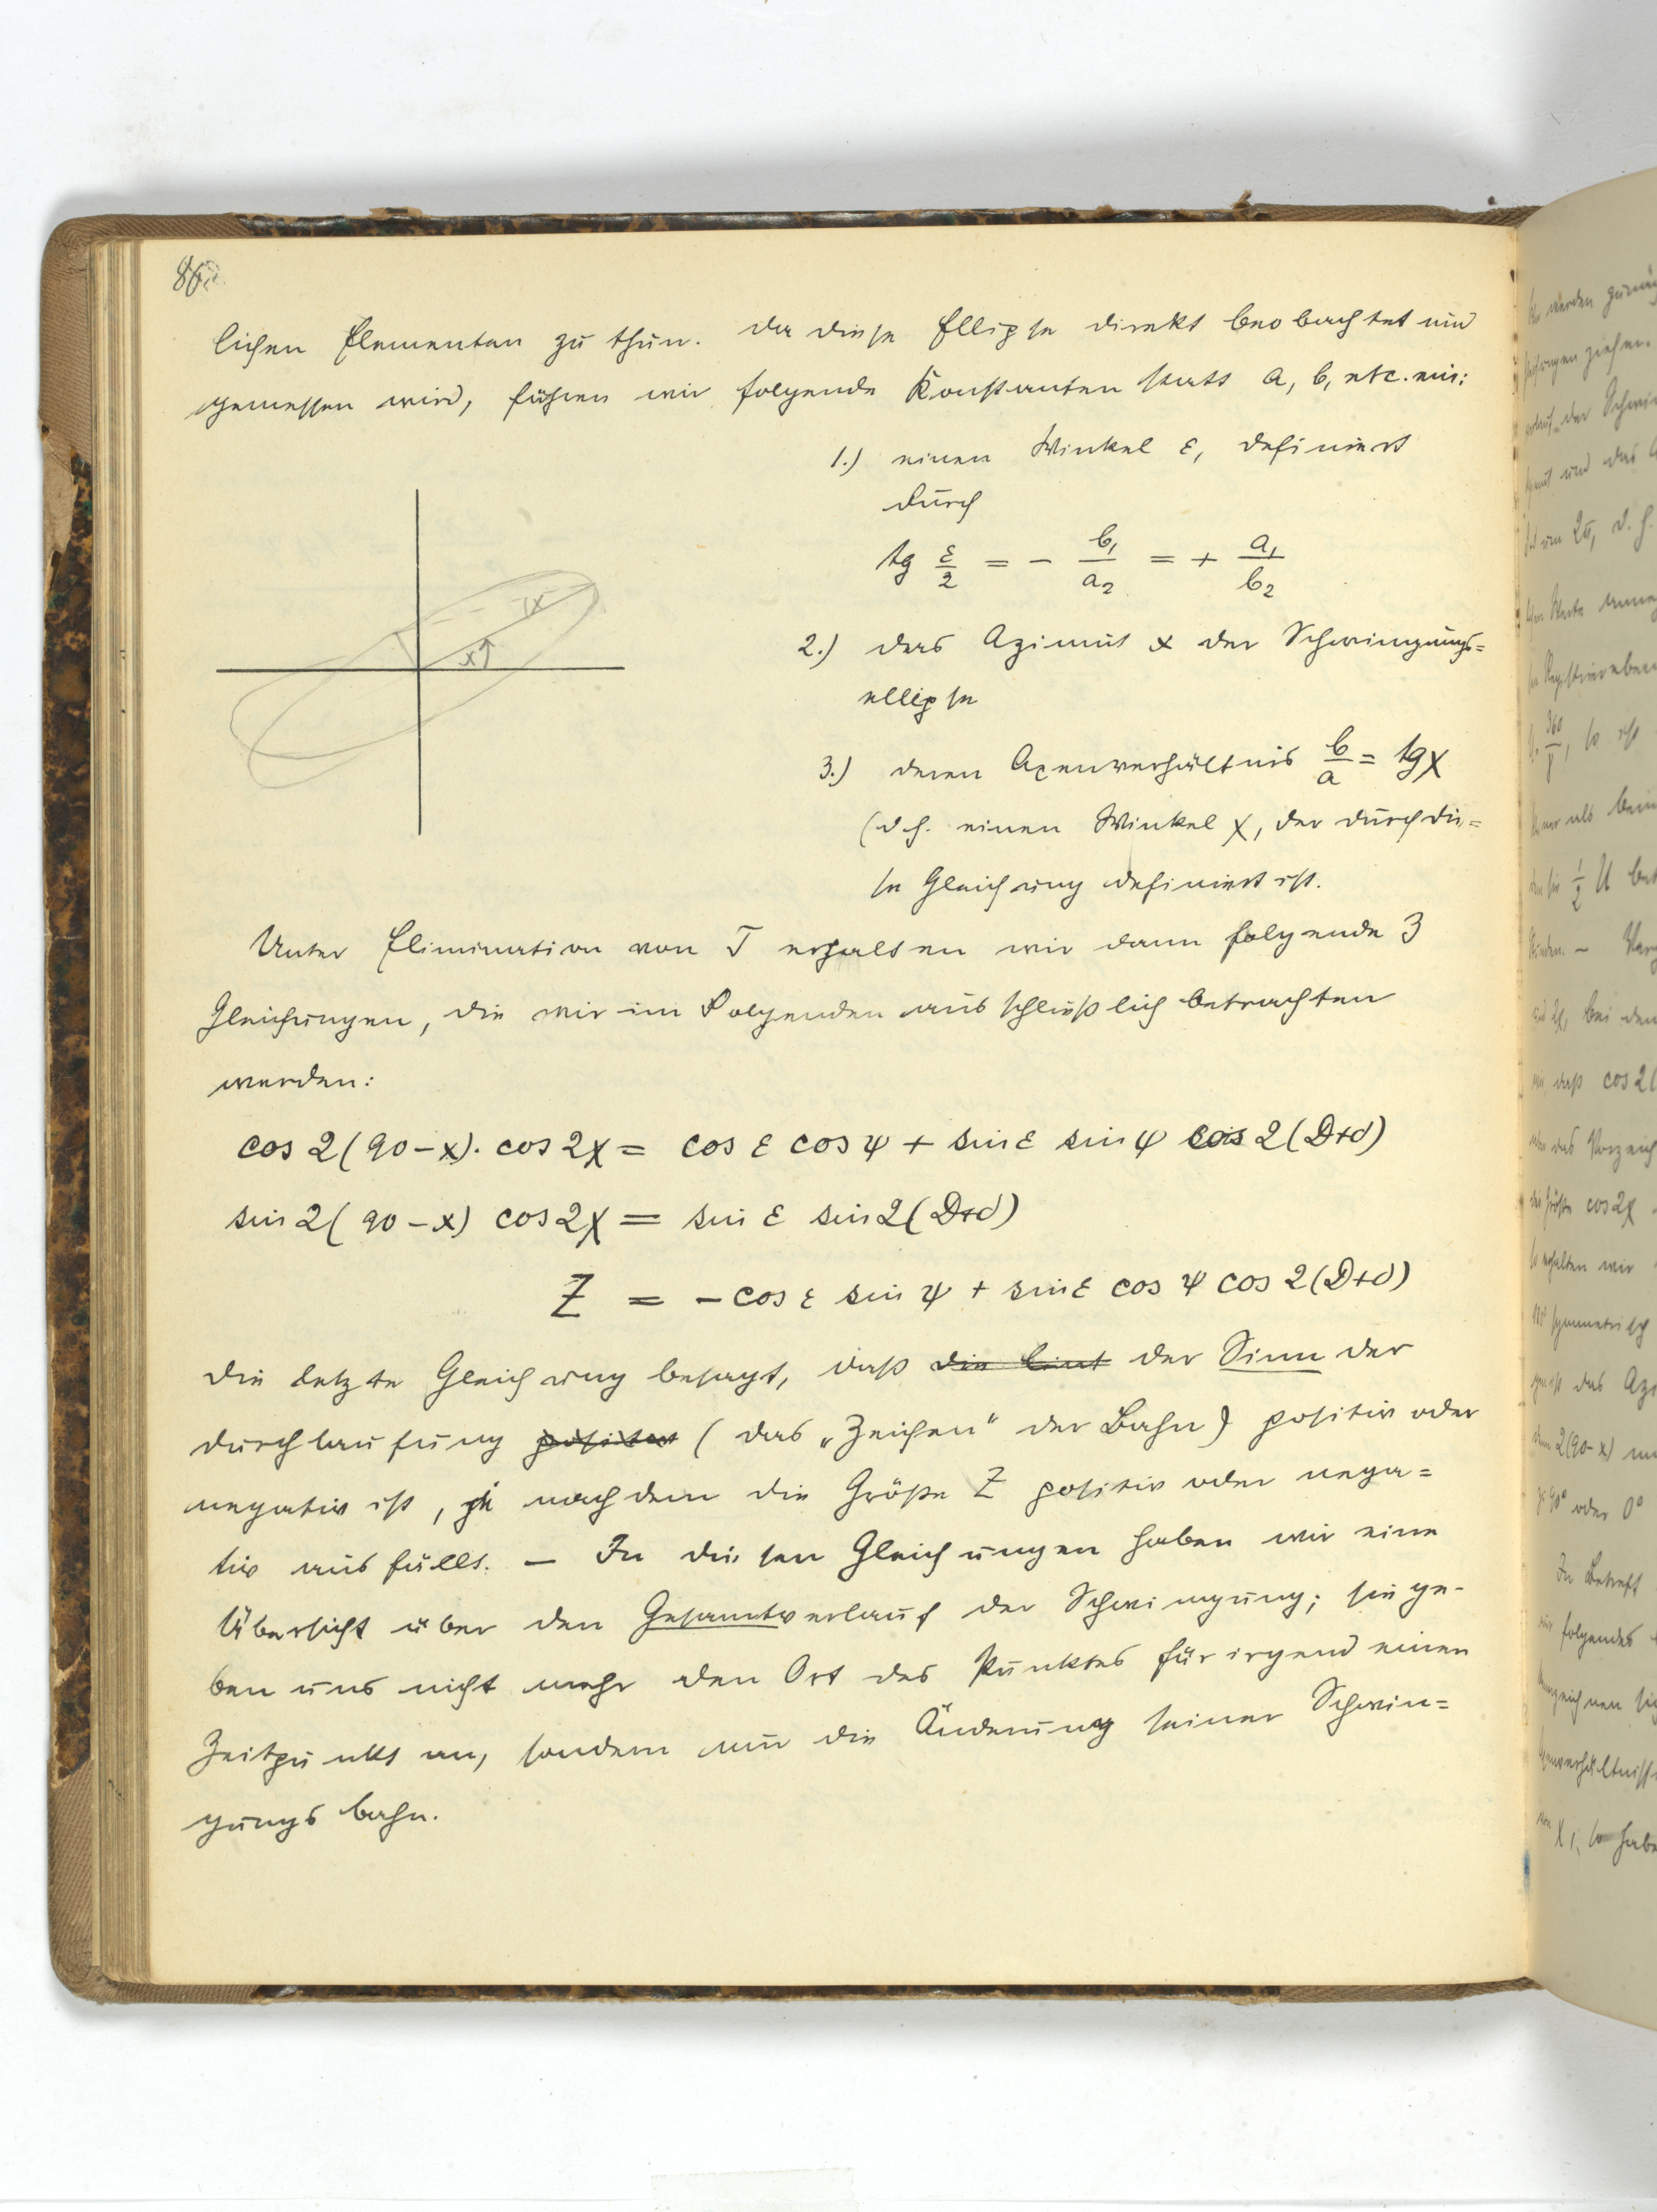 86.
lichen Elementen zu thun. Da diese Ellipse direkt beobachtet und
gemessen wird, führen wir folgende Konstanten statt a, b, etc. ein:
1.) einen Winkel ε, definiert
durch
tg ε/2 = - b₁/a₂ = + a₁/b₂
2.) das Azimut x der Schwingungs=
ellipse
3.) deren Axenverhältnis b/a = tg χ
(d.h. einen Winkel χ, der durch die=
se Gleichung definiert ist.
x
χ
Unter Elimination von T erhalten wir dann folgende 3
Gleichungen, die wir im Folgenden ausschließlich betrachten
werden:
cos 2(90-x). cos 2χ = cos ε cos ψ + sin ε sin ψ cos 2(D+d)
sin 2(90-x) cos 2χ = sin ε sin 2(D+d)
Z = - cos ε sin ψ + sin ε cos ψ cos 2(D+d)
Die letzte Gleichung besagt, daß die der Sinn der
Durchlaufung (das „Zeichen" der Bahn) positiv oder
negativ ist, je nachdem die Größe Z positiv oder nega=
tiv ausfällt. – In diesen Gleichungen haben wir eine
Übersicht über den Gesamtverlauf der Schwingung; sie ge-
ben uns nicht mehr den Ort des Punktes für irgend einen
Zeitpunkt an, sondern nur die Änderung seiner Schwin=
gungsbahn.